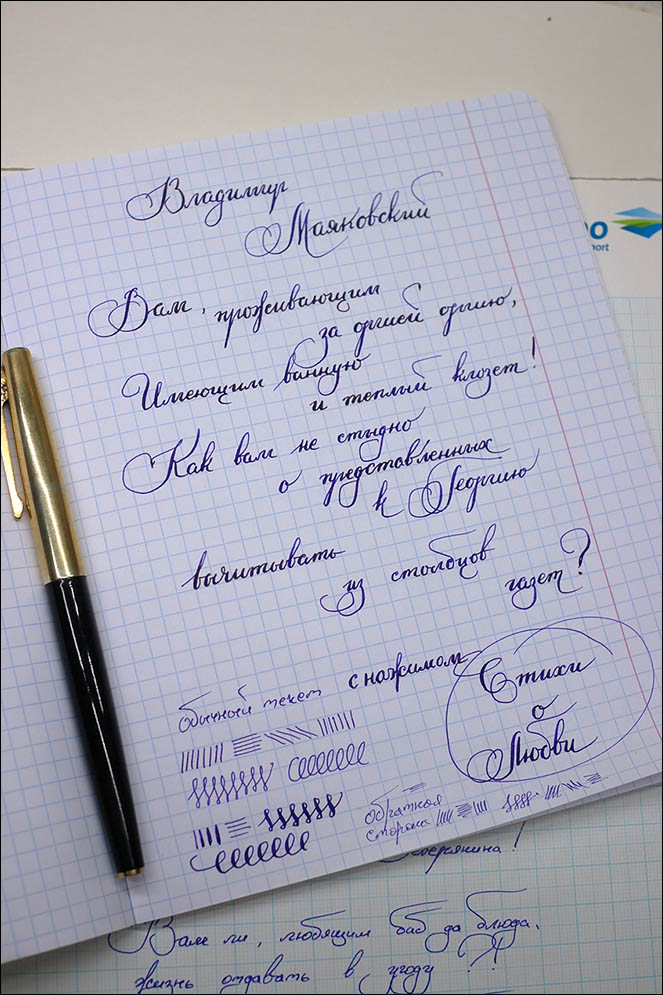 Владимир
Маяковский
Вам, проживающим
за оргией оргию,
Имеющим ванную
и теплый клозет!
Как вам не стыдно
о представленных
к Георгию
вычитывать
из столбцов
газет?
обычный текст с нажимом
Стихи
о
Любви
обратная
сторона
port
Вам ли, любящим баб да блюда,
жизнь отдавать в угоду ?!